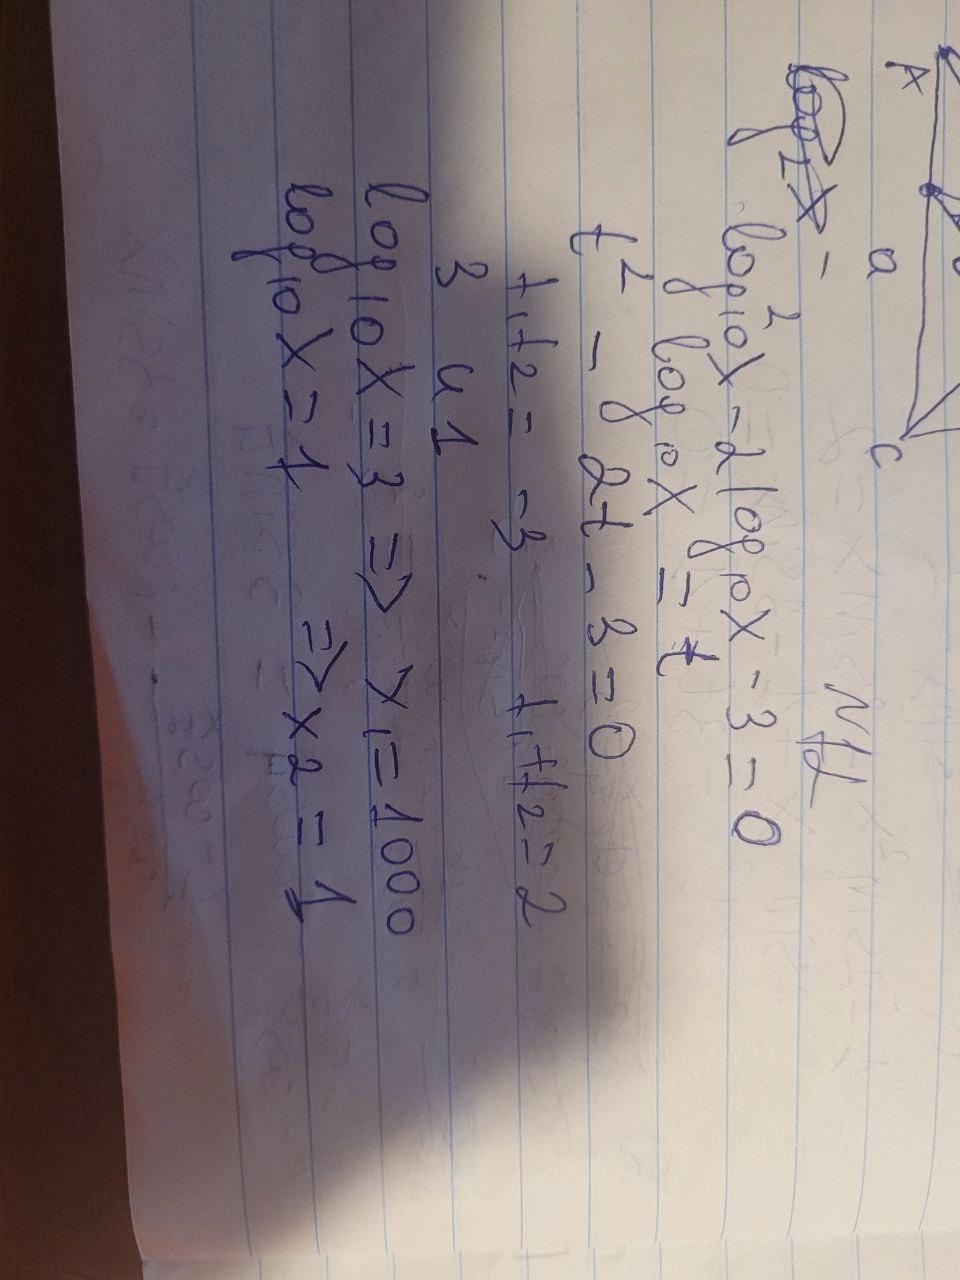 A a C
№1
log²10x - 2log10x - 3 = 0
log10x = t
t² - 2t - 3 = 0
t1t2 = -3 t1+t2 = 2
3 и 1
log10x = 3 => x1 = 1000
log10x = 1 => x2 = 1